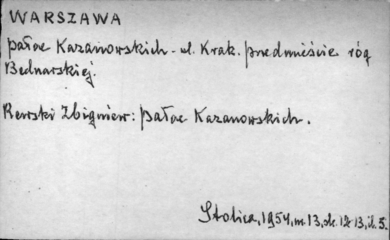 WARSZAWA
pałac Kazanowskich - ul. Krak. przedmieście róg
Bednarskiej.
Rewski Zbigniew: pałac Kazanowskich.
Stolica, 1954, nr 13, str. 12-13, il. 5.